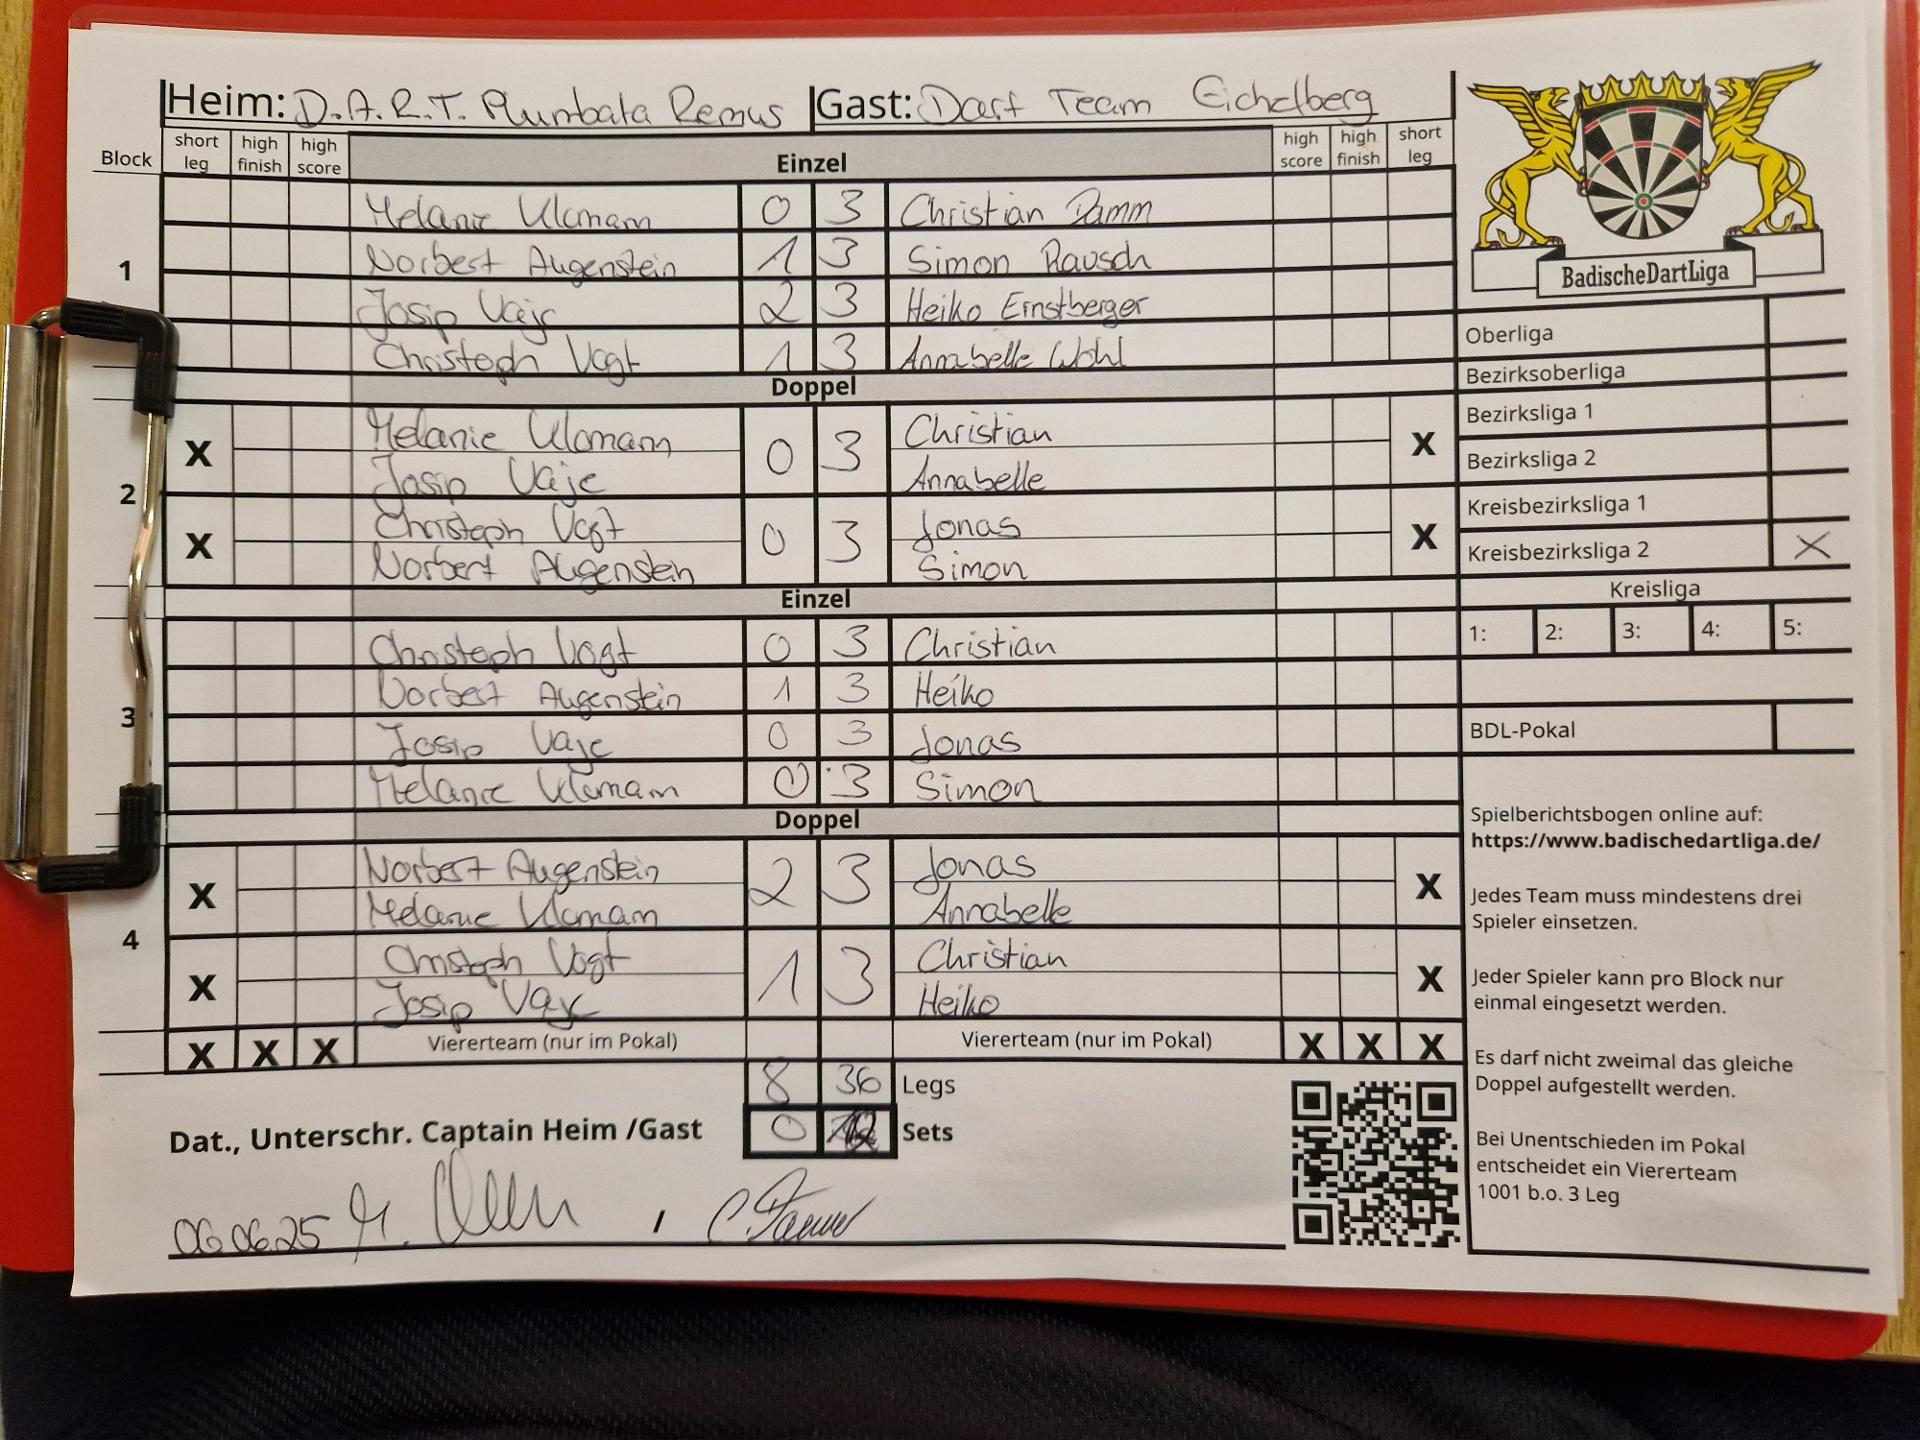 Heim: D.A.R.T. Plumbata Remus Gast: Dart Team Eichelberg
Block short leg high finish high score Einzel high score high finish short leg
1
Melanie Ulomann 0 3 Christian Damm
Norbert Augenstein 1 3 Simon Rausch
Josip Vajc 2 3 Heiko Ernstberger
Christoph Vogt 1 3 Annabelle Wohl
Doppel
2
X Melanie Ulomann 0 3 Christian X
Josip Vajc Annabelle
X Christoph Vogt 0 3 Jonas X
Norbert Augenstein Simon
Einzel
3
Christoph Vogt 0 3 Christian
Norbert Augenstein 1 3 Heiko
Josip Vajc 0 3 Jonas
Melanie Ulomann 0 3 Simon
Doppel
4
X Norbert Augenstein 2 3 Jonas X
Melanie Ulomann Annabelle
X Christoph Vogt 1 3 Christian X
Josip Vajc Heiko
X X X Viererteam (nur im Pokal) Viererteam (nur im Pokal) X X X
8 36 Legs
Dat., Unterschr. Captain Heim /Gast 0 12 Sets
06.06.25 /
BadischeDartLiga
Oberliga
Bezirksoberliga
Bezirksliga 1
Bezirksliga 2
Kreisbezirksliga 1
Kreisbezirksliga 2 X
Kreisliga
1: 2: 3: 4: 5:
BDL-Pokal
Spielberichtsbogen online auf:
https://www.badischedartliga.de/
Jedes Team muss mindestens drei
Spieler einsetzen.
Jeder Spieler kann pro Block nur
einmal eingesetzt werden.
Es darf nicht zweimal das gleiche
Doppel aufgestellt werden.
Bei Unentschieden im Pokal
entscheidet ein Viererteam
1001 b.o. 3 Leg